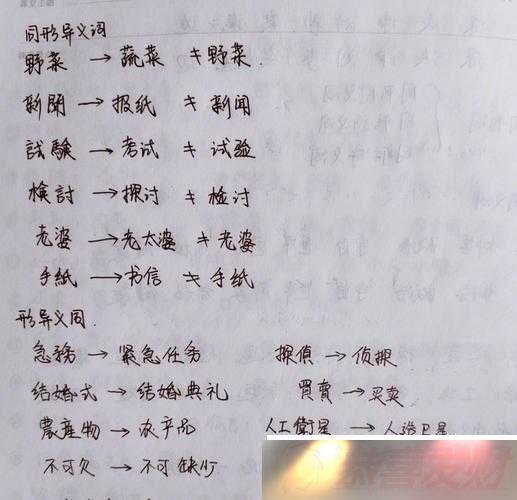 同形异义词
野菜 → 蔬菜 キ 野菜.
新聞 → 报纸 キ 新闻
試験 → 考试 キ 试验
検討 → 探讨 キ 检讨
老婆 → 老太婆 キ 老婆
手紙 → 书信 キ 手纸
形异义同.
急務 → 紧急任务 探偵 → 侦探
结婚式 → 结婚典礼 買賣 → 买卖
農産物 → 农产品 人工衛星 → 人造卫星
不可欠 → 不可缺少
恭喜发财